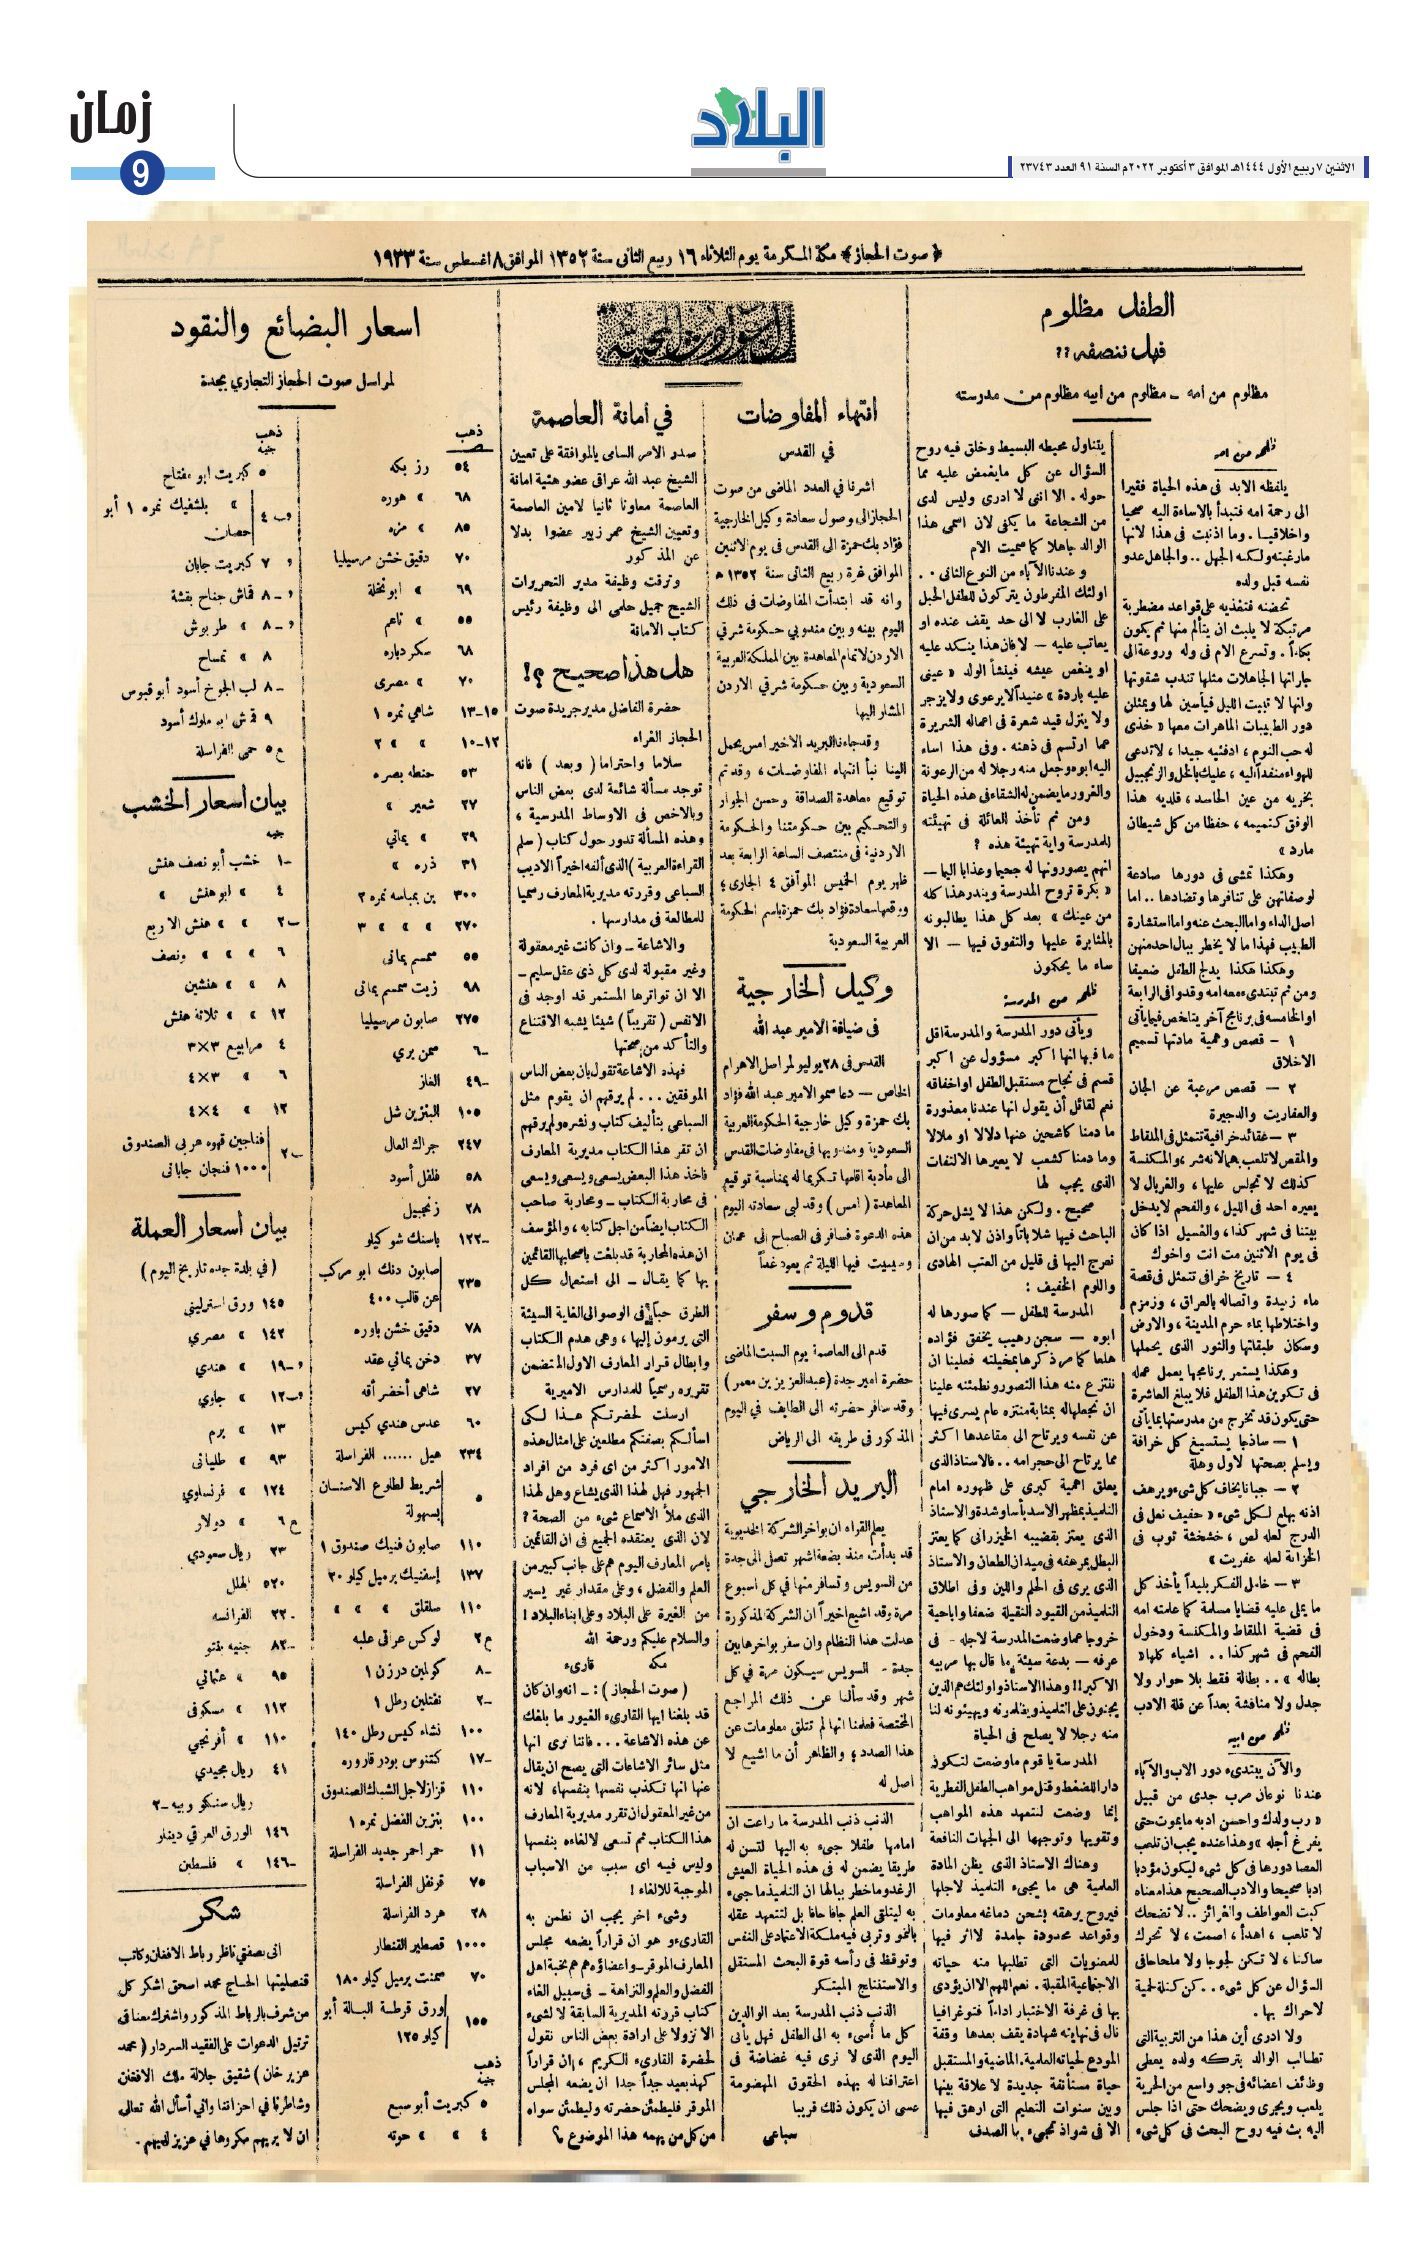 البلاد
زمان
9
الاثنين ٧ ربيع الأول ١٤٤٤هـ الموافق ٣ أكتوبر ٢٠٢٢م السنة ٩١ العدد ٢٣٧٤٣
﴿ صوت الحجاز ﴾ مكة المكرمة يوم الثلاثاء ١٦ ربيع الثاني سنة ١٣٥٢ الموافق ٨ اغسطس سنة ١٩٣٣
الطفل مظلوم
فهل ننصفه ؟؟
مظلوم من امه ـ مظلوم من ابيه مظلوم من مدرسته
ظلمه من امه
يلفظه الابد فى هذه الحياة فقيرا
الى رحمة امه فتبدأ بالاساءة اليه صحيا
واخلاقيا . وما اذنبت فى هذا لانها
مارغبته ولكنه الجهل .. والجاهل عدو
نفسه قبل ولده
تحضنه فتغذيه على قواعد مضطربة
مرتبكة لا يلبث ان يتألم منها ثم يكون
بكاءاً . وتسرع الام فى وله وروعة الى
جاراتها الجاهلات مثلها تندب شقوتها
وانها لا تبيت الليل فيأسين لها ويمثلن
دور الطبيبات الماهرات معها « خذى
له حب النوم ، ادفئيه جيدا ، لا تدعى
للهواء منفذاً اليه ، عليك بالخل والزنجبيل
بخريه من عين الحاسد ، قلديه هذا
الوفق كتميمه ، حفظا من كل شيطان
مارد »
وهكذا تمشى فى دورها صادعة
لوصفاتهن على تنافرها وتضادها .. اما
اصل الداء واما البحث عنه واما استشارة
الطبيب فهذا ما لا يخطر ببال احد منهن
وهكذا هكذا يدلج الطفل ضعيفا
ومن ثم تبتدىء معه امه وقد وافى الرابعة
او الخامسه فى برنامج آخر يتلخص فيما يأتى
١ – قصص وهمية مادتها تسميم
الاخلاق
٢ – قصص مرعبة عن الجان
والعفاريت والدجيرة
٣ – عقائد خرافية تتمثل فى الملقاط
والمقص لا تلعب بهما لانه شر ، والمكنسة
كذلك لا تجلس عليها ، والغربال لا
يعيره احد فى الليل ، والفحم لا يدخل
بيتنا فى شهر كذا ، والغسيل اذا كان
فى يوم الاثنين مت انت واخوك
٤ – تاريخ خرافى تتمثل فى قصة
ماء زبيدة واتصاله بالعراق ، وزمزم
واختلاطها بماء حرم المدينة ، والارض
وسكان طبقاتها والثور الذى يحملها
وهكذا يستمر برنامجها يعمل عمله
فى تكوين هذا الطفل فلا يبلغ العاشرة
حتى يكون قد تخرج من مدرستها بما يأتى
١ – ساذجا يستسيغ كل خرافة
ويسلم بصحتها لاول وهلة
٢ – جبانا يخاف كل شىء ويرهف
اذنه بهلع لكل شىء « حفيف نعل فى
الدرج لعله لص ، خشخشة ثوب فى
الخزانة لعله عفريت »
٣ – خامل الفكر بليداً يأخذ كل
ما يملى عليه قضايا مسلمة كما علمته امه
فى قضية الملقاط والمكنسة ودخول
الفحم فى شهر كذا .. اشياء كلها «
بطاله » .. بطالة فقط بلا حوار ولا
جدل ولا مناقشة بعداً عن قلة الادب
ظلمه من ابيه
والآن يبتدىء دور الاب والآباء
عندنا نوعان مرب جدى من قبيل
« رب ولدك واحسن ادبه ما يموت حتى
يفرغ أجله » وهذا عنده يجب ان تلعب
العصا دورها فى كل شىء ليكون مؤدبا
ادبا صحيحا والادب الصحيح هذا معناه
كبت العواطف والغرائز .. لا تضحك
لا تلعب ، اهدأ ، اصمت ، لا تتحرك
ساكنا ، لا تكن لجوجا ولا ملحاحا فى
السؤال عن كل شىء .. كن كتلة لحمية
لا حراك بها .
ولا ادرى أين هذا من التربية التى
تطالب الوالد بتركه ولده يعطى
وظائف اعضائه فى جو واسع من الحرية
يلعب ويجرى ويضحك حتى اذا جلس
اليه بث فيه روح البحث فى كل شىء
يتناول محيطه البسيط وخلق فيه روح
السؤال عن كل ما يغمض عليه مما
حوله . الا اننى لا ادرى وليس لدى
من الشجاعة ما يكفى لان اسمى هذا
الوالد جاهلا كما سميت الام
وعندنا الآباء من النوع الثانى ..
اولئك المفرطون يتركون للطفل الحبل
على الغارب لا الى حد يقف عنده او
يعاتب عليه – لا فان هذا ينكد عليه
او ينغص عيشه فينشأ الولد « عينى
عليه باردة » عنيداً لا يرعوى ولا يزجر
ولا يتنزل قيد شعرة فى اعماله الشريرة
عما ارتسم فى ذهنه . وفى هذا اساء
اليه ابوه وجعل منه رجلا له من الرعونة
والغرور ما يضمن له الشقاء فى هذه الحياة
ومن ثم تأخذ العائلة فى تهيئته
للمدرسة واية تهيئة هذه ؟
انهم يصورونها له جحيما وعذابا اليما –
« بكرة تروح المدرسة ويندر هذا كله
من عينك » بعد كل هذا يطالبونه
بالمثابرة عليها والتفوق فيها – الا
ساء ما يحكمون
ظلمه من المدرسة
ويأتى دور المدرسة والمدرسة اقل
ما فيها انها اكبر مسؤول عن اكبر
قسم فى نجاح مستقبل الطفل او اخفاقه
نعم لقائل أن يقول انها عندنا معذورة
ما دمنا كاشحين عنها دلالا او ملالا
وما دمنا كشعب لا يعيرها الالتفات
الذى يجب لها
صحيح . ولكن هذا لا يشل حركة
الباحث فيها شلا باتاً واذن لابد من ان
نعرج اليها فى قليل من العتب الهادى
واللوم الخفيف :
المدرسة للطفل – كما صورها له
ابوه – سجن رهيب يخفق فؤاده
هلعا كما مر ذكرها بمخيلته فعلينا ان
ننتزع منه هذا التصور ونطمئنه علينا
ان نجعلها له بمثابة منتزه عام يسرى فيها
عن نفسه ويرتاح الى مقاعدها اكثر
مما يرتاح الى حجر امه .. فالاستاذ الذى
يعلق اهمية كبرى على ظهوره امام
التلميذ بمظهر الاسد بأسا وشدة والاستاذ
الذى يعتز بقضيبه الخيزرانى كما يعتز
البطل بمرهفه فى ميدان الطعان والاستاذ
الذى يرى فى الحلم واللين وفى اطلاق
التلميذ من القيود الثقيلة ضعفا واباحية
خروجا عما وضعت المدرسة لاجله – فى
عرفه – بدعة سيئة ما قال بها مربيه
الاكبر !! وهذا الاستاذ واولئك هم الذين
يجنون على التلميذ ويظلمونه ويهيئونه لنا
منه رجلا لا يصلح فى الحياة
المدرسة يا قوم ما وضعت لتكون
دارا للضغط وقتل مواهب الطفل الفطرية
إنما وضعت لتتعهد هذه المواهب
وتقويها وتوجهها الى الجهات النافعة
وهناك الاستاذ الذى يظن المادة
العلمية هى ما يجىء التلميذ لاجلها
فيروح يرهقه بشحن دماغه معلومات
وقواعد محدودة جامدة لا اثر فيها
للمعنويات التى تطلبها منه حياته
الاجتماعية المقبلة . نعم اللهم الا ان يؤدى
بها فى غرفة الاختبار اداءاً فتوغرافيا
نال فى نهايته شهادة يقف بعدها وقفة
المودع لحياته العلمية الماضية والمستقبل
حياة مستأنفة جديدة لا علاقة بينها
وبين سنوات التعليم التى ارهق فيها
الا فى شواذ تجىء بها الصدف
الذنب ذنب المدرسة ما راعت ان
امامها طفلا جىء به اليها لتسن له
طريقا يضمن له فى هذه الحياة العيش
الرغد وما خطر ببالها ان التلميذ ما جىء
به ليتلقى العلم جافا جافا بل لتتعهد عقله
بالنمو وتربى فيه ملكة الاعتماد على النفس
وتوقظ فى رأسه قوة البحث المستقل
والاستنتاج المبتكر
الذنب ذنب المدرسة بعد الوالدين
كل ما أسىء به الى الطفل فهل يأتى
اليوم الذى لا نرى فيه غضاضة فى
اعترافنا له بهذه الحقوق المهضومة
عسى ان يكون ذلك قريبا
سباعى
الحوادث المحلية
انتهاء المفاوضات
في القدس
اشرنا في العدد الماضى من صوت
الحجاز الى وصول سعادة وكيل الخارجية
فؤاد بك حمزة الى القدس فى يوم الاثنين
الموافق غرة ربيع الثانى سنة ١٣٥٢ ه
وانه قد ابتدأت المفاوضات فى ذلك
اليوم بينه وبين مندوبي حكومة شرقي
الاردن لاتمام المعاهدة بين المملكة العربية
السعودية وبين حكومة شرقي الاردن
المشار اليها
وقد جاءنا البريد الاخير امس يحمل
الينا نبأ انتهاء المفاوضات ، وقد تم
توقيع معاهدة الصداقة وحسن الجوار
والتحكيم بين حكومتنا والحكومة
الاردنية فى منتصف الساعة الرابعة بعد
ظهر يوم الخميس الموافق ٤ الجارى ؛
وقعها سعادة فؤاد بك حمزة باسم الحكومة
العربية السعودية
وكيل الخارجية
فى ضيافة الامير عبد الله
القدس فى ٢٨ يوليو لمراسل الاهرام
الخاص – دعا سمو الامير عبد الله فؤاد
بك حمزة وكيل خارجية الحكومة العربية
السعودية ومندوبها فى مفاوضات القدس
الى مأدبة اقامها تكريما له بمناسبة توقيع
المعاهدة ( امس ) وقد لبى سعادته اليوم
هذه الدعوة فسافر فى الصباح الى عمان
وسيبيت فيها الليلة ثم يعود غداً
قدوم وسفر
قدم الى العاصمة يوم السبت الماضى
حضرة امير جدة ( عبد العزيز بن معمر )
وقد سافر حضرته الى الطايف في اليوم
المذكور فى طريقه الى الرياض
البريد الخارجي
يعلم القراء ان بواخر الشركة الخديوية
قد بدأت منذ بضعة اشهر تصل الى جدة
من السويس وتسافر منها في كل اسبوع
مرة وقد اشيع اخيراً ان الشركة المذكورة
عدلت هذا النظام وان سفر بواخرها بين
جدة – السويس سيكون مرة في كل
شهر وقد سألنا عن ذلك المراجع
المختصة فعلمنا انها لم تتلق معلومات عن
هذا الصدد ؛ والظاهر أن ما اشيع لا
اصل له
في أمانة العاصمة
صدر الامر السامى بالموافقة على تعيين
الشيخ عبد الله عراقى عضو هئية امانة
العاصمة معاونا ثانيا لامين العاصمة
وتعيين الشيخ عمر زبير عضوا بدلا
عن المذكور
وترقت وظيفة مدير التحريرات
الشيخ جميل حلمى الى وظيفة رئيس
كتاب الامانة
هل هذا صحيح ؟!
حضرة الفاضل مدير جريدة صوت
الحجاز الغراء
سلاما واحتراما ( وبعد ) فانه
توجد مسألة شائعة لدى بعض الناس
وبالاخص فى الاوساط المدرسية ،
وهذه المسألة تدور حول كتاب ( سلم
القراءة العربية ) الذى ألفه اخيراً الاديب
السباعى وقررته مديرية المعارف رسميا
للمطالعة فى مدارسها .
والاشاعة – وان كانت غير معقولة
وغير مقبولة لدى كل ذى عقل سليم –
الا ان تواترها المستمر قد اوجد فى
الانفس ( تقريباً ) شيئا يشبه الاقتناع
والتأكد من صحتها
فهذه الاشاعة تقول بان بعض الناس
الموقفين ... لم يرقهم ان يقوم مثل
السباعى بتأليف كتاب ونشره ولم يرقهم
ان تقر هذا الكتاب مديرية المعارف
فاخذ هذا البعض يسعى ويسعى ويسعى
فى محاربة الكتاب – ومحاربة صاحب
الكتاب ايضاً من اجل كتابه ، والمؤسف
ان هذه المحاربة قد بلغت باصحابها القائمين
بها كما يقال – الى استعمال كل
الطرق حباً فى الوصول الى الغاية السيئة
التى يرمون إليها ، وهى هدم الكتاب
وابطال قرار المعارف الاول المتضمن
تقريره رسمياً للمدارس الاميرية
ارسلت لحضرتكم هذا لكى
اسألكم بصفتكم مطلعين على امثال هذه
الامور اكثر من اى فرد من افراد
الجمهور فهل لهذا الذى يشاع وهل لهذا
الذى ملأ الاسماع شىء من الصحة ؟
لان الذى يعتقده الجميع فى ان القائمين
بامر المعارف اليوم هم على جانب كبير من
العلم والفضل ، وعلى مقدار غير يسير
من الغيرة على البلاد وعلى ابناء البلاد !
والسلام عليكم ورحمة الله
مكه قارىء
( صوت الحجاز ) : – انه وان كان
قد بلغنا ايها القارىء الغيور ما بلغك
عن هذه الاشاعة ... فاننا نرى انها
مثل سائر الاشاعات التى يصح ان يقال
عنها انها تكذب نفسها بنفسها ، لانه
من غير المعقول ان تقرر مديرية المعارف
هذا الكتاب ثم تسعى لالغاءه بنفسها
وليس فيه اى سبب من الاسباب
الموجبة للالغاء !
وشىء اخر يجب ان نطمن به
القارىء وهو ان قراراً يضعه مجلس
المعارف الموقر – واعضاؤه هم هم نخبة اهل
الفضل والعلم والنزاهة – فى سبيل الغاء
كتاب قررته المديرية السابقة لا لشىء
الا نزولا على ارادة بعض الناس نقول
لحضرة القارىء الكريم ، ان قراراً
كهذ بعيد جداً جدا ان يضعه المجلس
الموقر فليطمئن حضرته وليطمئن سواه
من كل من يهمه هذا الموضوع ؟
اسعار البضائع والنقود
لمراسل صوت الحجاز التجاري بجدة
ذهب
٥٤ رز بكه
٦٨ » هوره
٨٥ » مزه
٧٠ دقيق خشن مرسيليا
٦٩ » ابو نخلة
٥٥ » ناعم
٦٨ سكر دباره
٧٠ » مصرى
١٥–١٣ شاهي نمره ١
١٢–١٠ » » ٢
٥٣ حنطه بصره
٢٧ شعير »
٢٩ » يمانى
٣١ ذره »
٣٠٠ بن بمباسه نمره ٢
٢٧٠ » » » ٣
٥٥ سمسم يمانى
٩٨ زيت سمسم يمانى
٢٧٥ صابون مرسيليا
٦– سمن بري
٤٩– الغاز
١٠٥ البنزين شل
٢٤٧ جراك العال
٥٨ فلفل أسود
٢٨ زنجبيل
١٢٢– باسنك شو كيلو
٢٣٥ صابون دنك ابو مركب
عن قالب ٤٠٠
٧٨ دقيق خشن باوره
٣٧ دخن يمانى عقد
٢٧ شاهى أخضر أقه
٦٠ عدس هندي كيس
٢٣٤ هيل ...... الفراسلة
٥ شريط لطلوع الاسنان
بسهولة
١١٠ صابون فنيك صندوق ١
١٣٧ إسفنيك برميل كيلو ٢٠
١١٠ سلقلق » » »
٢ع لوكس عراقى علبه
٨– كولمين درزن ١
٢– نفتلين رطل ١
١٠٠ نشاء كيس رطل ١٤٠
١٧– كتنوس بودر قاروره
١١٠ قزاز لاجل الشباك الصندوق
١٠٠ بنزين الفضل نمره ١
١١ حمر احمر جديد الفراسلة
٧٥ قرنفل الفراسلة
٢٨ هرد الفراسلة
١٠٠٠ قصطير القنطار
٧٠ سمنت برميل كيلو ١٨٠
١٥٥ ورق قرطسة البالة أبو
كيلو ١٢٥
ذهب
جنيه
٥ كبريت أبو سبع
٤ » » حوته
ذهب
جنيه
٥ كبريت ابو مفتاح
٤ » بلشفيك نمره ١ أبو
حصان
٧ كبريت جابان
٨– قماش جناح بفشة
٨– » طربوش
٨ » تمساح
٨– لب الجوخ أسود أبو قبوس
٩ قمش ابو ملوك أسود
٥ع حمى الفراسلة
بيان اسعار الخشب
جنيه
١– خشب أبو نصف هنش
٤ » ابو هنش »
٢– » » هنش الا ربع
٦ » » » ونصف
٨ » » هنشين
١٢ » » ثلاثة هنش
٤ مرابيع ٣×٣
٦ » ٣×٤
١٢ » ٤×٤
٢– فناجين قهوه عربى الصندوق
١٠٠٠ فنجان جابانى
بيان أسعار العملة
( في بلدة جده تاريخ اليوم )
١٤٥ ورق استرليني
١٤٢ » مصري
١٩– » هندي
١٢– » جاوي
١٣ » برم
٩٣ » طليانى
١٢٤ » فرنساوي
٦ع » دولار
٢٣ ريال سعودي
٥٢٠ الهلل
٢٢– الفرانسه
٨٢– جنيه بنتو
٩٥ » عثمانى
١١٢ » مسكوفى
١١٠ » أفرنجي
٤١ ريال مجيدي
ريال سنكو وبيه –٢
١٤٦ الورق العراقي دينار
١٤٦– » فلسطين
شكر
انى بصفتى ناظر رباط الافغان وكاتب
قنصليتها الحاج محمد اسحق اشكر كل
من شرف بالرباط المذكور واشترك معنا فى
ترتيل الدعوات على الفقيد السردار ( محمد
عزيز خان ) شقيق جلالة ملك الافغان
وشاطرنا في احزاننا واني أسأل الله تعالى
ان لا يريهم مكروها في عزيز لديهم .